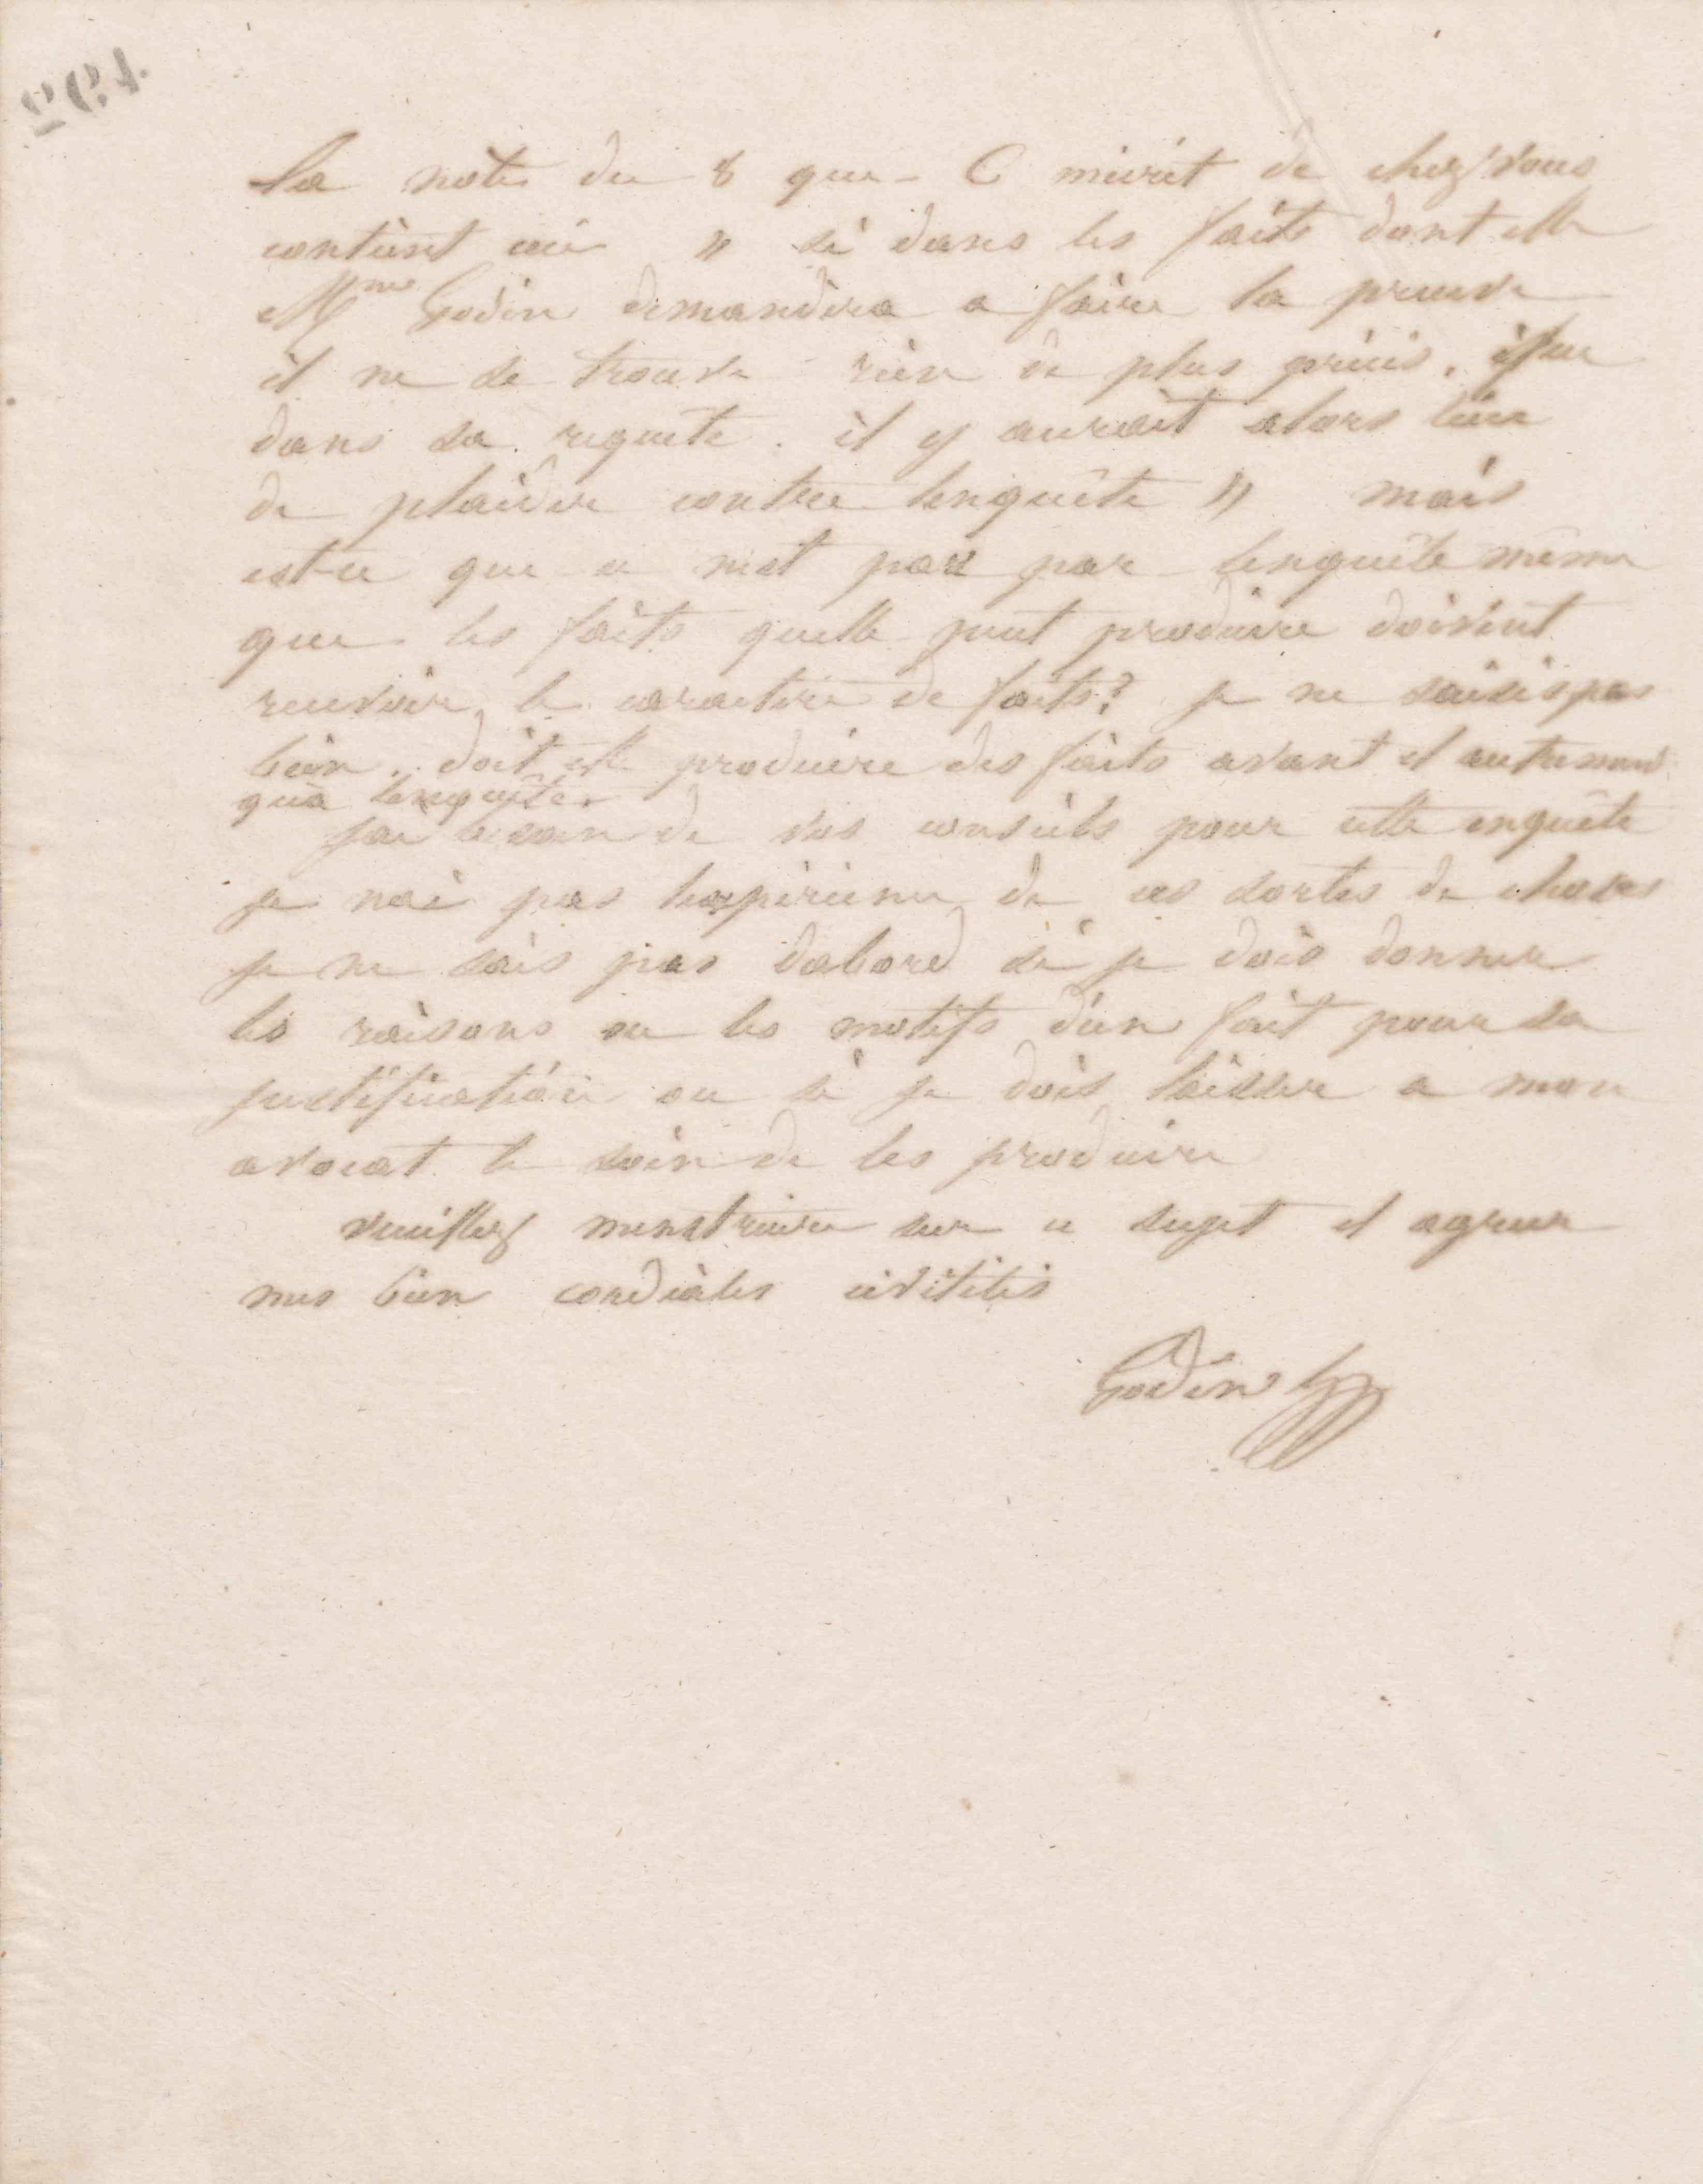 la note du 8 que C m'écrit de chez vous
contient ceci " si dans les faits dont elle
Mme Godin demandera a faire la preuve
il ne se trouve rien de plus précis, que
dans sa requête. il y aurait alors lieu
de plaider contre lenquête " mais
est-ce que ce nest pas par lenquête même
que les faits quelle peut produire doivent
recevoir le caractère de faits? je ne saisis pas
bien. doit elle produire des faits avant et autrement
qua lenquête.
jai besoin de vos conseils pour cette enquête
je nai pas lexpérience de ces sortes de choses
je ne sais pas dabord si je dois donner
les raisons ou les motifs dun fait pour sa
justification ou si je dois laisser a mon
avocat le soin de les produire
veuillez minstruire sur ce sujet et agreer
mes bien cordiales civilités
Godin